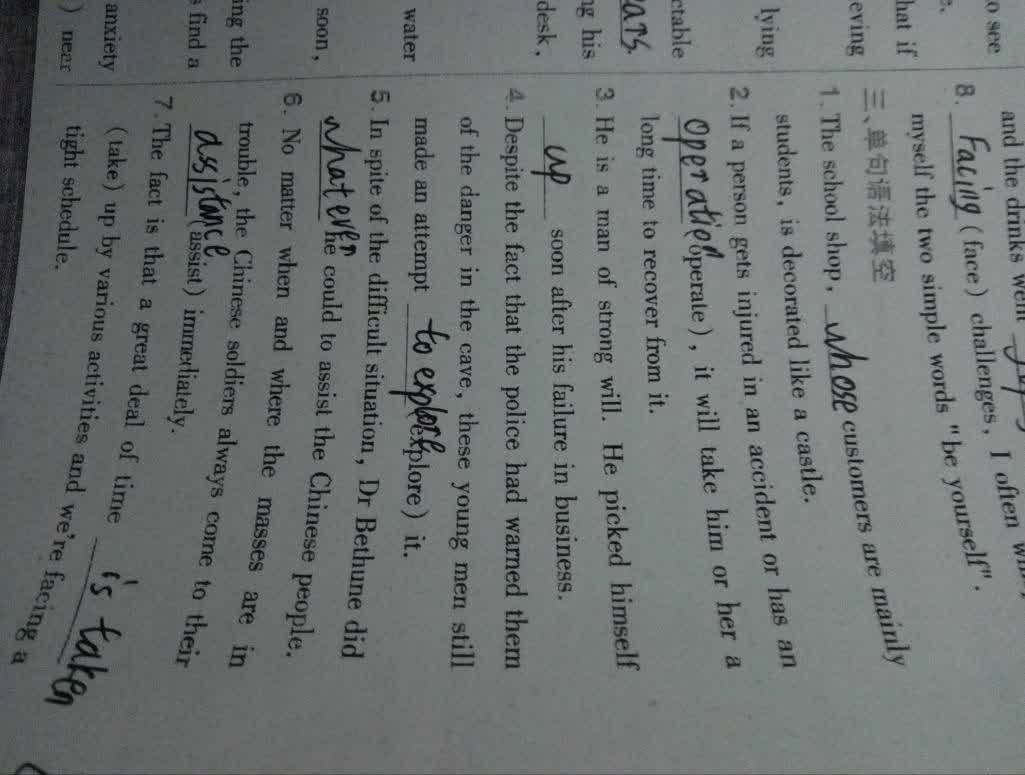 o see
e.
hat if
eving
lying
ctable
ears.
ng his
desk,
water
soon,
ing the
s find a
anxiety
and the drinks went
8. Facing (face) challenges, I often
myself the two simple words "be yourself".
三、单句语法填空
1. The school shop, whose customers are mainly
students, is decorated like a castle.
2. If a person gets injured in an accident or has an
operation (operate), it will take him or her a
long time to recover from it.
3. He is a man of strong will. He picked himself
up soon after his failure in business.
4. Despite the fact that the police had warned them
of the danger in the cave, these young men still
made an attempt to explore (explore) it.
5. In spite of the difficult situation, Dr Bethune did
whatever he could to assist the Chinese people.
6. No matter when and where the masses are in
trouble, the Chinese soldiers always come to their
assistance (assist) immediately.
7. The fact is that a great deal of time is taken
(take) up by various activities and we're facing a
tight schedule.